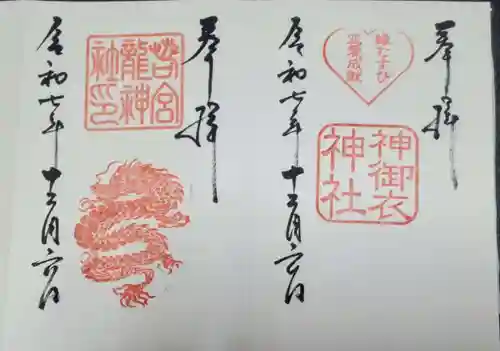 奉拝
縁むすび
恋愛成就
神御衣
神社
令和七年十二月六日
奉拝
若宮
龍神
社印
令和七年十二月六日